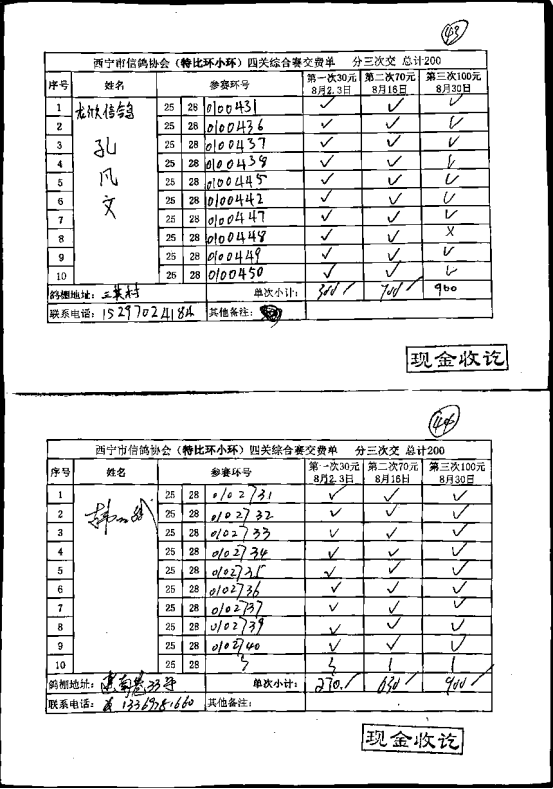 43
西宁市信鸽协会（特比环小环）四关综合赛交费单 分三次交 总计200
序号 姓名 参赛环号 第一次30元 8月2.3日 第二次70元 8月16日 第三次100元 8月30日
1 信鸽 25 28 0100431 ✓ ✓ ✓
2 孔 25 28 0100436 ✓ ✓ ✓
3 25 28 0100437 ✓ ✓ ✓
4 凡 25 28 0100438 ✓ ✓ ✓
5 25 28 0100445 ✓ ✓ ✓
6 文 25 28 0100442 ✓ ✓ ✓
7 25 28 0100447 ✓ ✓ ✓
8 25 28 0100448 ✓ ✓ X
9 25 28 0100449 ✓ ✓ ✓
10 25 28 0100450 ✓ ✓ ✓
鸽棚地址： 村 单次小计： 300 700 900
联系电话：15297024184 其他备注：
现金收讫
44
西宁市信鸽协会（特比环小环）四关综合赛交费单 分三次交 总计200
序号 姓名 参赛环号 第一次30元 8月2.3日 第二次70元 8月16日 第三次100元 8月30日
1 25 28 0102731 ✓ ✓ ✓
2 韩 25 28 0102732 ✓ ✓ ✓
3 25 28 0102733 ✓ ✓ ✓
4 25 28 0102734 ✓ ✓ ✓
5 25 28 0102735 ✓ ✓ ✓
6 25 28 0102736 ✓ ✓ ✓
7 25 28 0102737 ✓ ✓ ✓
8 25 28 0102739 ✓ ✓ ✓
9 25 28 0102740 ✓ ✓ ✓
10 25 28
鸽棚地址： 南巷33号 单次小计： 270 630 900
联系电话： 其他备注：
现金收讫